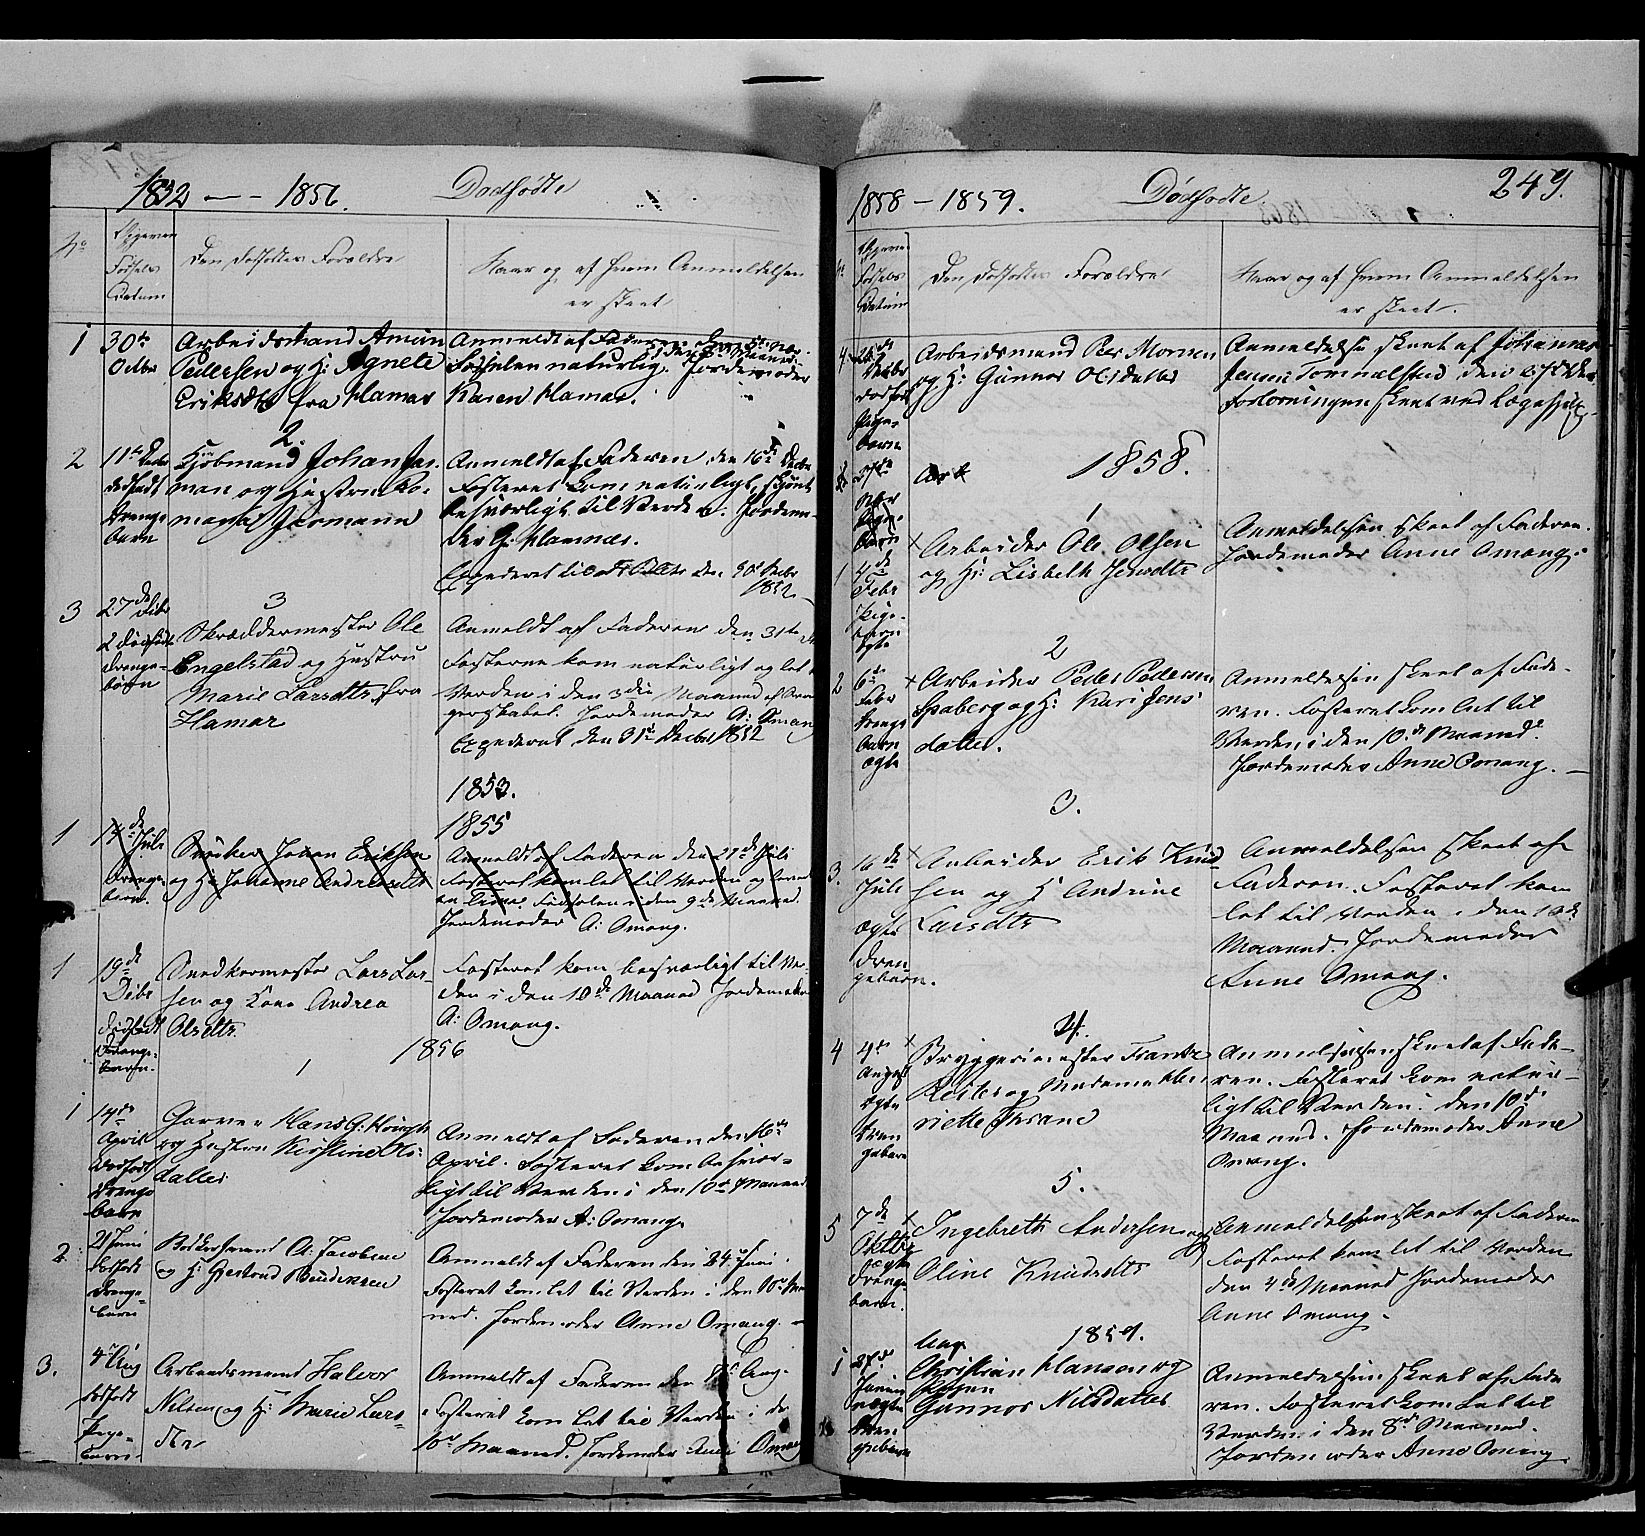 1852 — 1856.
Dødfødte
No
Opgiven
Fødsels
Datum
Den Dødfødtes Forældre
Naar og af hvem Anmeldelsen
er skeet
1
30te
Octbr
Arbeidsmand Amun
Pedersen og H: Agnete
Eriksdtr fra Hamar
Anmeldt af Faderen
Fødselen naturlig. Jordemoder
Karen Hamar.
2.
2
11te Decbr
dødfødt
Drenge
barn
Kjøbmand Johan Jas.
man og Hustru Ro-
magna Jasmann
Anmeldt af Faderen, den 16de Decbr
Fosteret kom naturligt, skjønt
besværligt til Verden. Jordemo-
der G. Hamnæs.
Expederet til den 30t Decbr
1852
3
3
27de Decbr
2 dødfødte
Drenge-
børn
Skræddermester Ole
Engelstad og Hustru
Marie Larsdtr fra
Hamar
Anmeldt af Faderen den 31te
Fosterne kom naturligt og let
Verden i den 3die Maaned af Svan
gerskabet. Jordemoder A: Oman
Expederet den 31te Decbr 1852
1853.
1855
1
17de Juli
Drenge
barn.
Snedker Johan Erikson
og H: Johanne Andreasdtr
Anmeldt af Faderen den 21de Juli
Fosteret kom let til Verden og
Fødselen i den 9de Maaned.
Jordemoder A: Omang.
1
19de
Debr
dødfødt
Drenge-
barn.
Snedkermester Lars Lar-
sen og Kone Andrea
Olsdtr.
Fosteret kom besværligt til Ver-
den i den 10de Maaned Jordemoder
A: Omang.
1856
1
1
14de
April
dødfødt
Drenge
barn
Garver Hans G:
og Hustru Kirstine Ols
datter
Anmeldt af Faderen den 16de
April. Fosteret kom besvær-
ligt til Verden i den 10de Maaned
Jordemoder A: Omang.
2
21 Juni
dødfødt
Drenge-
barn
A: Jacobsen
og H: Gjertrud
Anmeldt af Faderen den 24de Juni.
Fosteret kom let til Verden i den 10de Maa
ned. Jordemoder Anne Omang.
3.
4de Aug
dødfødt
Pige-
barn
Arbeidsmand Halvor
Nilsen og H: Marie Lars-
dtr
Anmeldt af Faderen den Aug.
Fosteret kom let til Verden i de
10de Maaned. Jordemoder Anne Omang
1858 – 1859.
Dødfødte
249.
Opgiven
Fødsels
Datum
Den Dødfødtes Forældre
Naar og af hvem Anmeldelsen
er skeet.
4
Decbr
dødfødt
Pige-
barn
Arbeidsmand Peer Monsen
og H: Gunnor Olsdatter
Anmeldelse skeet af Johannes
Jensen Tommelstad, den
Forløsningen skeet ved Lægehjelp.
27de
Arb
1858.
1
1
4de
Febr
Pige-
barn
ægte
Arbeider Ole Olsen
og H: Lisbeth Jensdtr
Anmeldelsen skeet af Faderen.
Jordemoder Anne Omang.
2
2
6te
Febr
Drenge
barn
ægte
Arbeider Peder Pedersen
Spaberg og H: Kari Jens
datter.
Anmeldelsen skeet af Fade-
ren. Fosteret kom let til
Verden i den 10de Maaned.
Jordemoder Anne Omang.
3.
3.
16de
Juli
ægte
Dren
gebarn.
Arbeider Erik Knud
sen og H Andrine
Larsdtr
Anmeldelsen skeet af
Faderen. Fosteret kom
let til Verden i den 10de
Maaned. Jordemoder
Anne Omang.
4.
4
4de
August
ægte
Dren
gebarn
Bryggerimester Frantz
Reiter og Madame Hen
riette Thrane
Anmeldelsen skeet af Fade-
ren. Fosteret kom natur-
ligt til Verden i den 10de
Maaned. Jordemoder Anne
Omang.
5.
5
7de
Oktbr
ægte
Drenge
barn.
Ingebreth Andersen og
Oline Knudsdtr
Anmeldelsen skeet af Faderen
Fosteret kom let til Verden
den 4de Maaned Jordemoder
Anne Omang.
1859.
1
27de
Januar
uægte
Dren
gebarn
Ung
Christian Hansen og
Pigen
Gunnor Nilsdatter
Anmeldelsen skeet af Fade
ren. Fosteret kom let til
Verden i den 8de Maaned.
Jordemoder Anne Omang